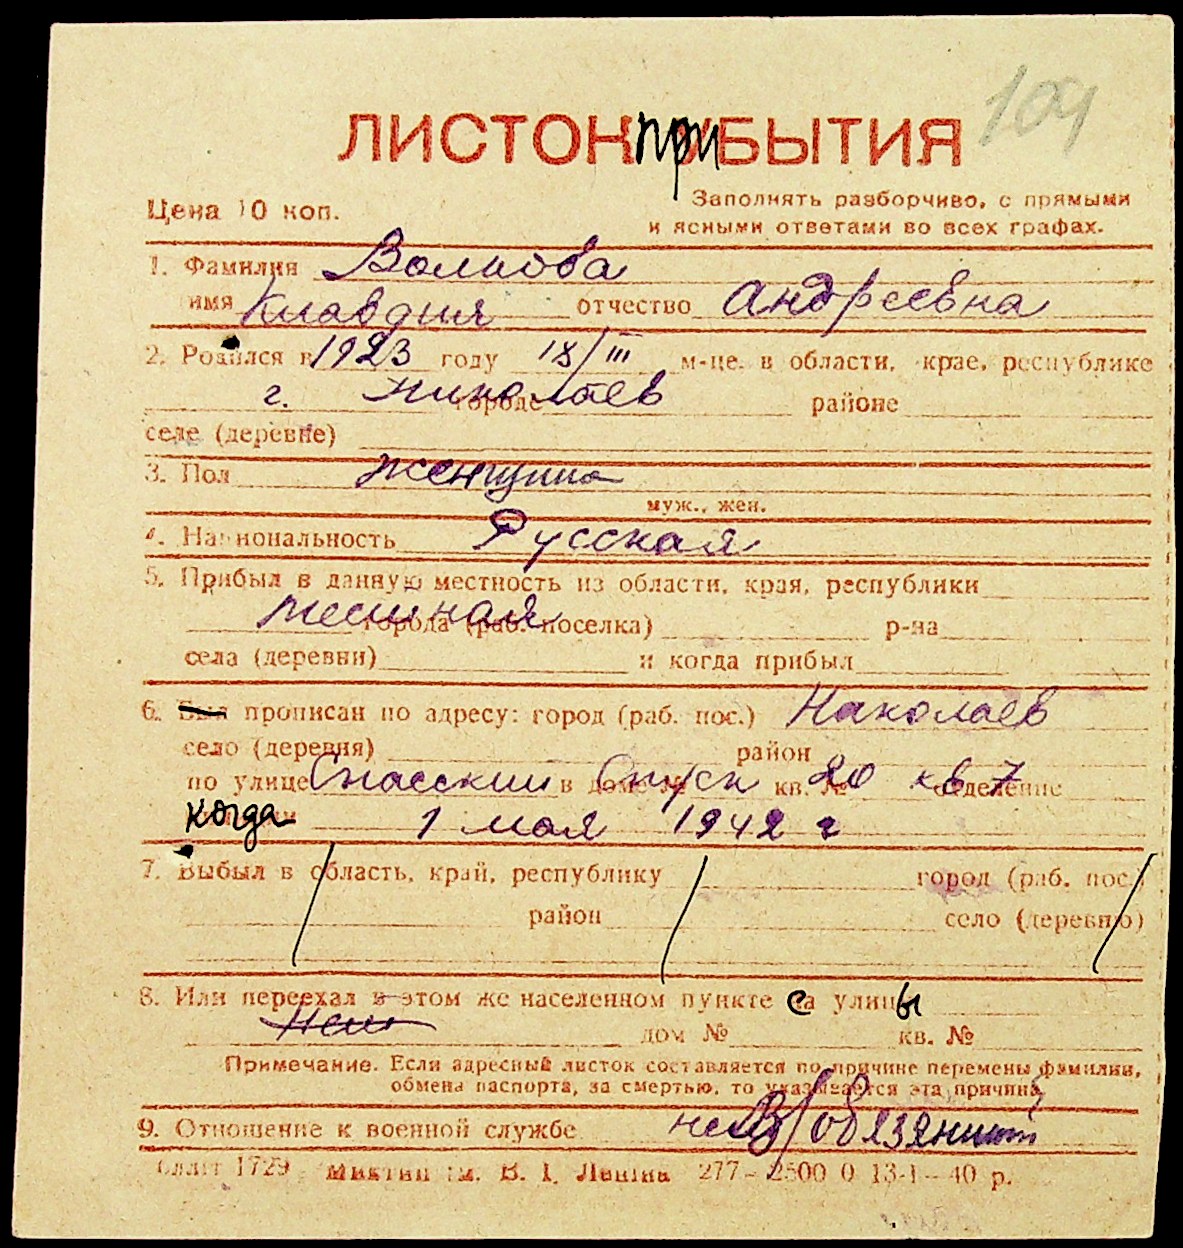 109
ЛИСТОК ПРИБЫТИЯ
Цена 10 коп.
Заполнять разборчиво, с прямыми
и ясными ответами во всех графах.
1. Фамилия Волкова
имя Клавдия отчество Андреевна
2. Родился в 1923 году 18/III м-це. в области, крае, республике
г. Николаев городе районе
селе (деревне)
3. Пол Женщина
муж., жен.
4. Национальность Русская
5. Прибыл в данную местность из области, края, республики
города (раб. поселка) р-на
села (деревни) и когда прибыл
6. Был прописан по адресу: город (раб. пос.) Николаев
село (деревня) район
по улице Спасский в доме № Спуск кв. № 20 кв 7 отделение
когда 1 мая 1942 г
7. Выбыл в область, край, республику город (раб. пос.)
район село (деревню)
8. Или переехал в этом же населенном пункте са улицы
Нет дом № кв. №
Примечание. Если адресный листок составляется по причине перемены фамилии,
обмена паспорта, за смертью, то указывается эта причина
9. Отношение к военной службе не В/обязянный
1729 им. В. І. Леніна 277—2500 0 13-1—40 р.